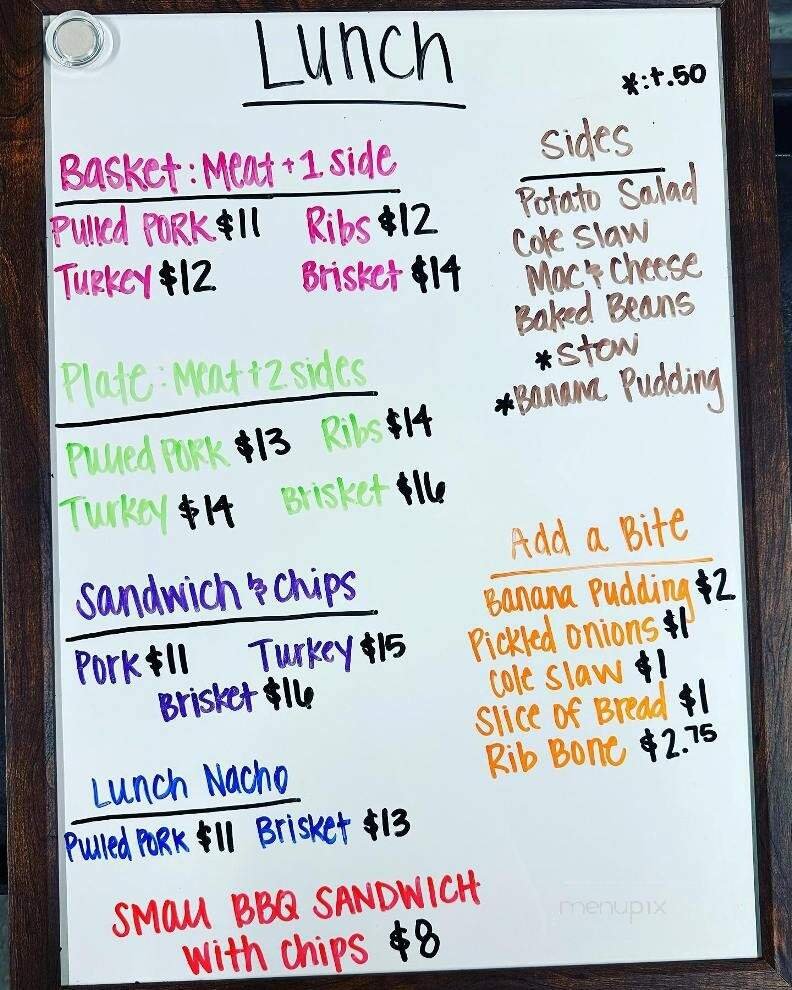 Lunch
*:+.50
Basket: Meat + 1 side
Pulled Pork $11 Ribs $12
Turkey $12 Brisket $14
Plate: Meat + 2 sides
Pulled Pork $13 Ribs $14
Turkey $14 Brisket $16
Sandwich & Chips
Pork $11 Turkey $15
Brisket $16
Lunch Nacho
Pulled Pork $11 Brisket $13
SMALL BBQ SANDWICH
with chips $8
Sides
Potato Salad
Cole Slaw
Mac & Cheese
Baked Beans
*Stew
*Banana Pudding
Add a Bite
Banana Pudding $2
Pickled Onions $1
Cole Slaw $1
Slice of Bread $1
Rib Bone $2.75
menupix